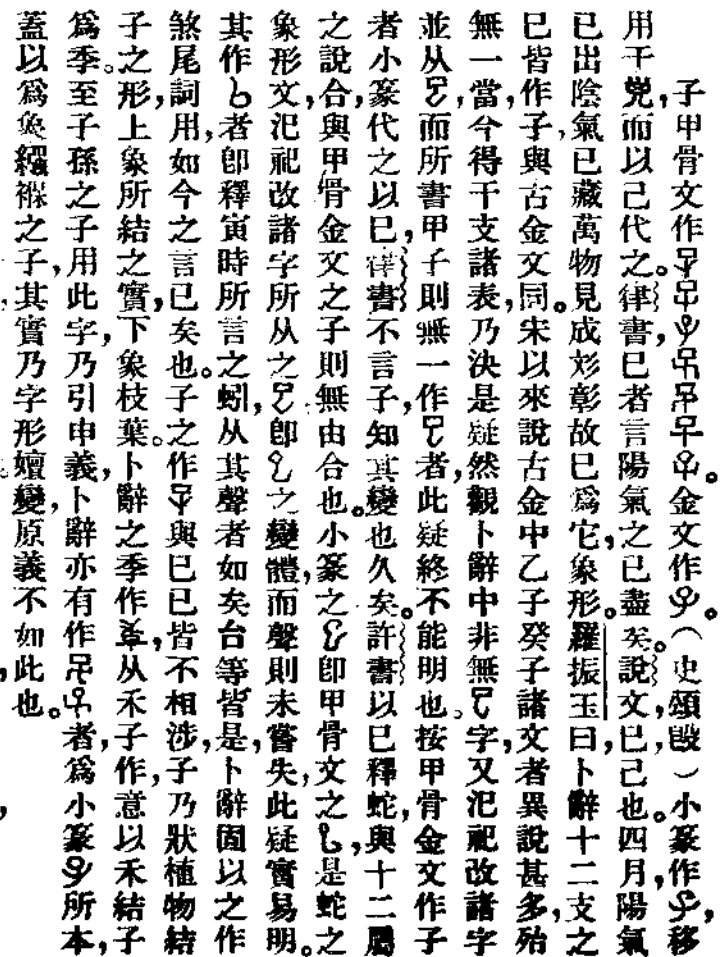 子甲骨文作。金文作。（史頌𣪘）小篆作，移
用干兇，而以己代之。律書，巳者言陽氣之已盡矣。說文，巳，已也。四月，陽氣
已出陰氣已藏萬物見成彣彰故巳為它，象形。羅振玉曰，卜辭十二支之
巳皆作子，與古金文同。宋以來說古金中乙子癸子諸文者異說甚多，殆
無一當，今得干支諸表，乃決是疑然觀卜辭中非無字，又汜祀改諸字
並从，而所書甲子則無一作者，此疑終不能明也。按甲骨金文作子
者小篆代之以巳，律書不言子，知其變也久矣。許書以巳釋蛇，與十二屬
之說合，與甲骨金文之子則無由合也。小篆之即甲骨文之，是蛇之
象形文，汜祀改諸字所从之即之變體，而聲則未嘗失，此疑實易明。
其作者即釋寅時所言之蚓，从其聲者如矣台等皆是，卜辭固以之作
煞尾詞用，如今之言已矣也。子之作與巳已皆不相涉，子乃狀植物結
子之形，上象所結之實，下象枝葉。卜辭之季作，从禾子作，意以禾結子
為季。至子孫之子用此字，乃引申義，卜辭亦有作者，為小篆所本，
蓋以為象繈褓之子，其實乃字形嬗變，原義不如此也。